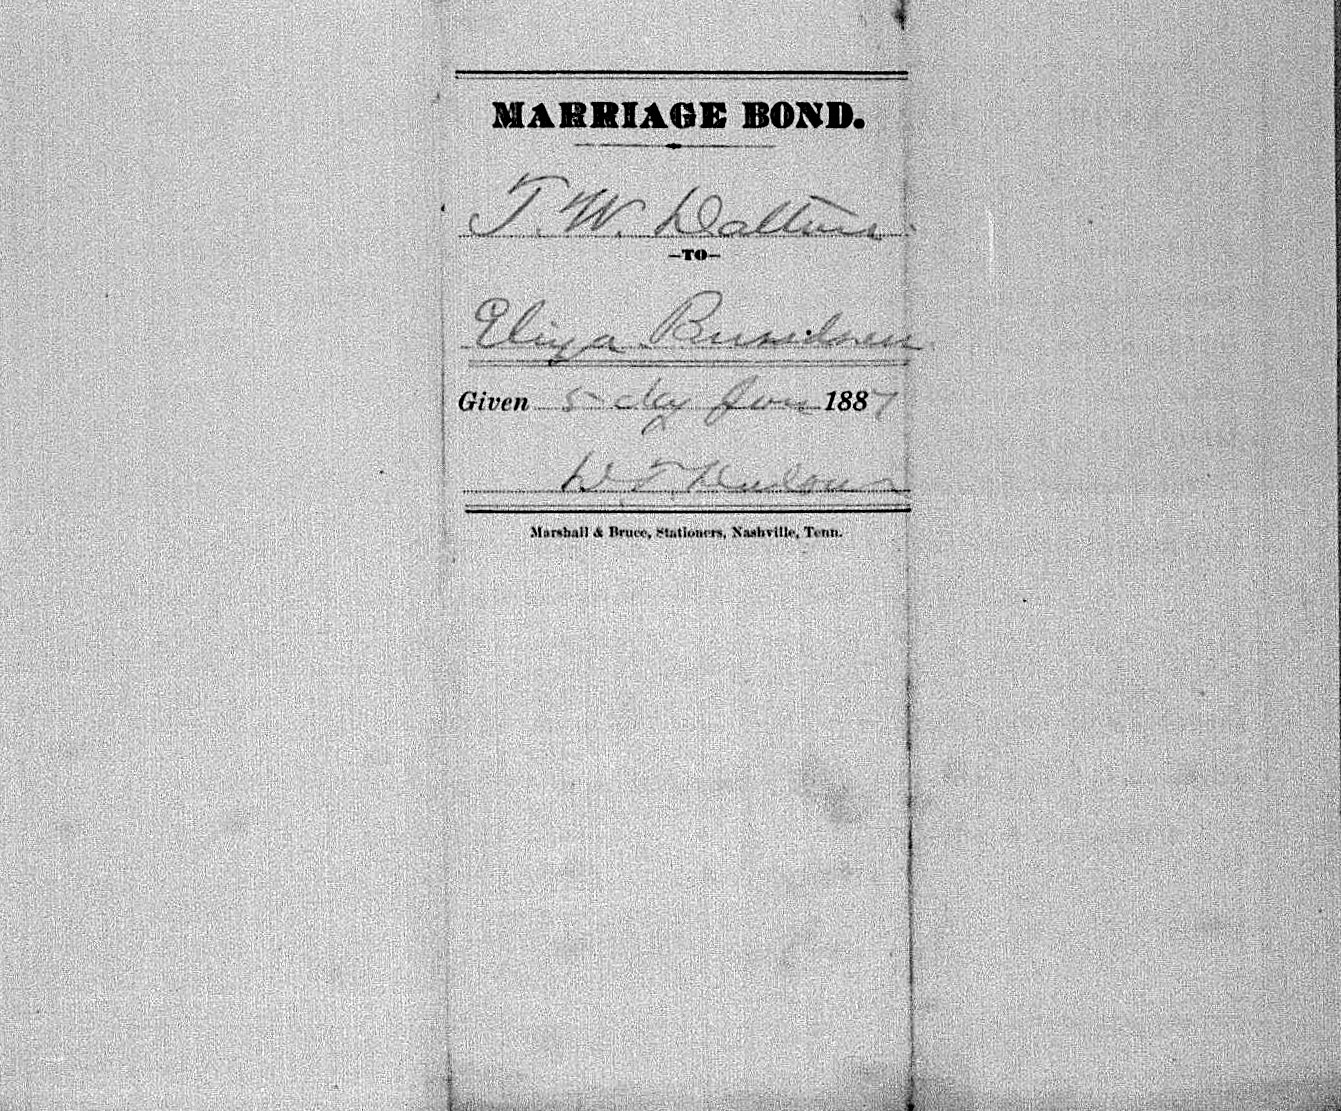 MARRIAGE BOND.
T. W. Dalton
—TO—
Eliza
Given 5 day Jan 1887
W. T.
Marshall & Bruce, Stationers, Nashville, Tenn.